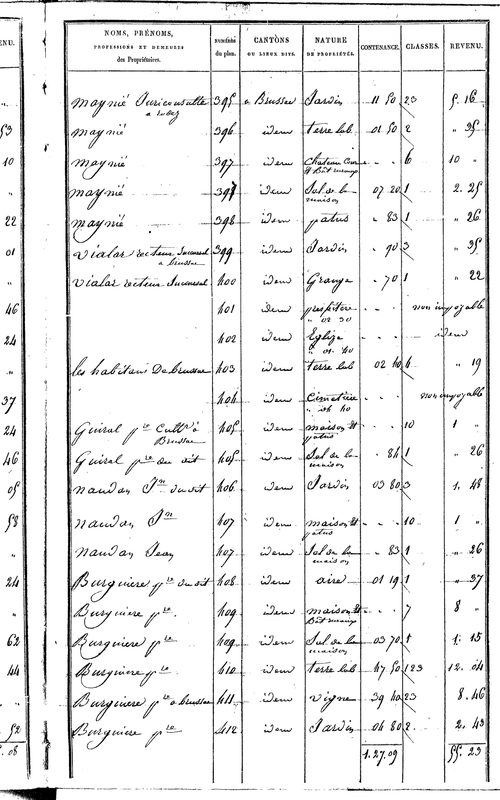 ENU. NOMS, PRÉNOMS, NUMÉROS CANTONS NATURE CONTENANCE. CLASSES. REVENU.
PROFESSIONS ET DEMEURES du plan. OU LIEUX DITS. DE PROPRIÉTÉS.
des Propriétaires.
" maynié Jurisconsulte 395 a Brussac Jardin 11 50 23 5. 16
a rodez
53 maynié 396 idem terre lab 01 50 2 " 35
10 maynié 397 idem Chateau 6 10 "
" maynié 397 idem Sol de la 07 20 1 2. 25
maison
22 maynié 398 idem patus " 83 1 " 26
01 Vialar recteur Succursal 399 idem Jardin " 90 3 " 35
a brussac
" Vialar recteur Succursal 400 idem Grange " 70 1 " 22
46 401 idem presbitere non imposable
" 02 30
24 402 idem Eglize idem
" 01 40
les habitans De brussac 403 idem terre lab 02 40 4 " 19
37 404 idem Cimetière non imposable
" 04 40
24 Guiral pre Cultr a 405 idem maison et 10 1 "
Brussac patus
46 Guiral pre du dit 405 idem Sol de la " 84 1 " 26
maison
05 naudan Jn du dit 406 idem Jardin 03 80 3 1. 48
58 naudan Jn 407 idem maison et 10 1 "
patus
" naudan Jean 407 idem Sol de la " 83 1 " 26
maison
24 Burguiere pre du dit 408 idem aire 01 19 1 " 37
" Burguiere pre 409 idem maison et 7 8 "
62 Burguiere pre 409 idem Sol de la 03 70 1 1. 15
maison
44 Burguiere pre 410 idem terre lab 47 50 123 12. 04
" Burguiere pre a brussac 411 idem vigne 39 40 23 8. 46
52 Burguiere pre 412 idem Jardin 04 80 2 2. 43
. 08 1. 27. 09 55. 23